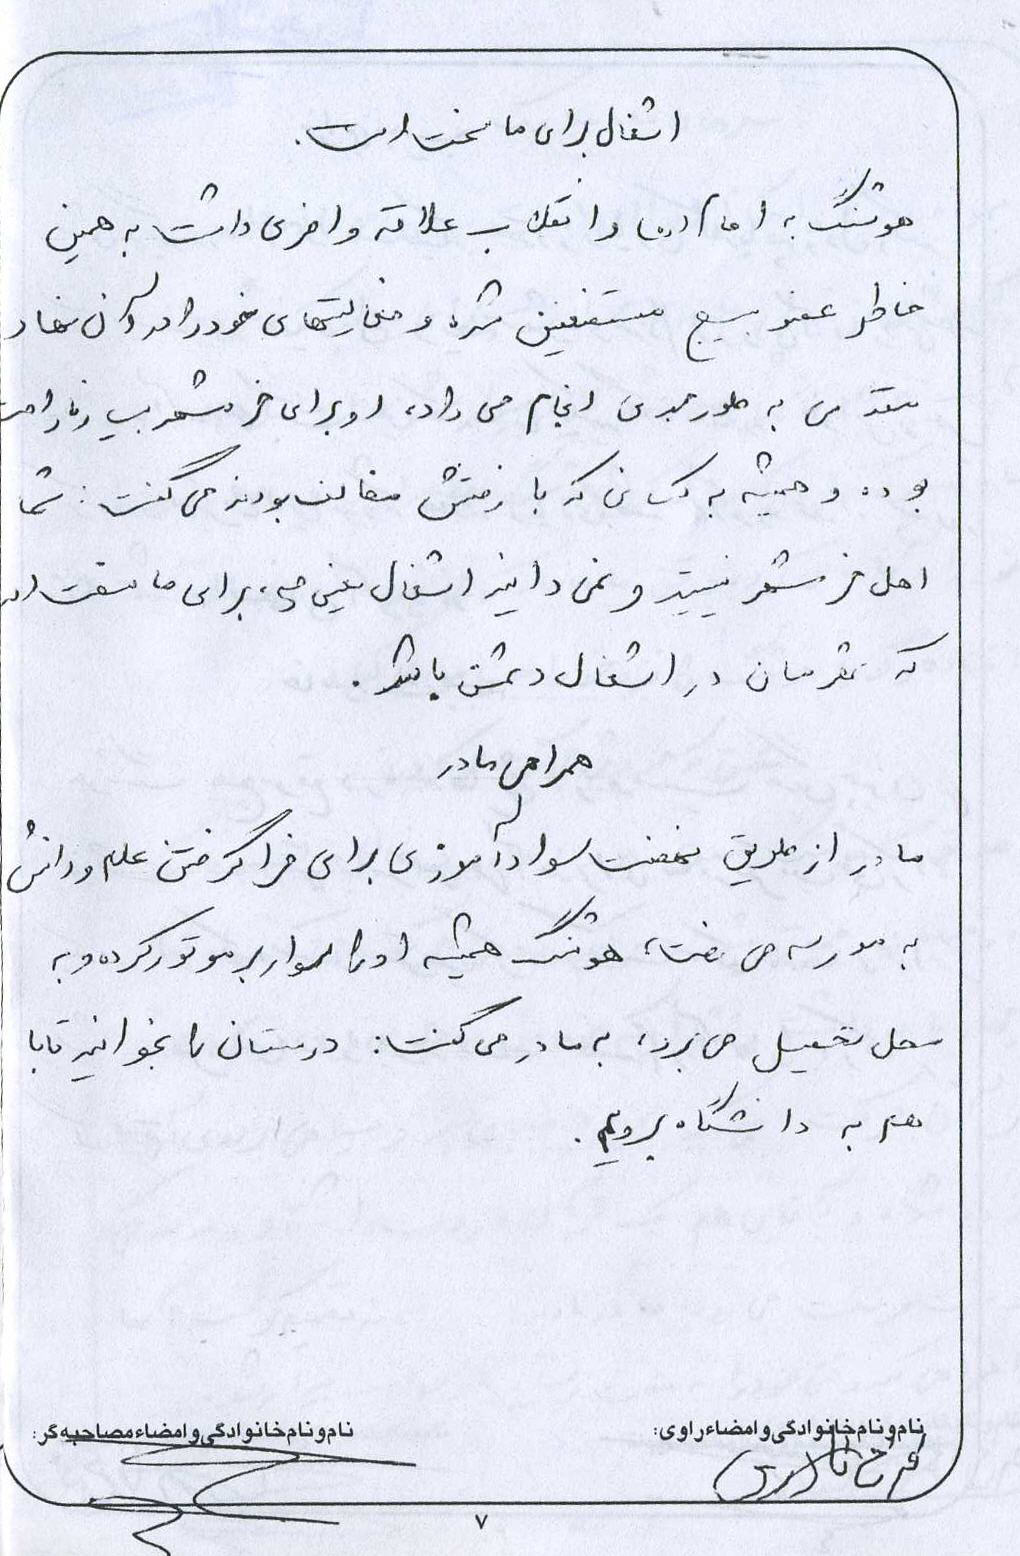 اشغال برای ما سخت است.
هوشنگ به امام (ره) و انقلاب علاقه وافری داشت به همین
خاطر عضو بسیج مستضعفین شده و فعالیتهای خود را در آن نهاد
مقدس به طور جدی انجام می داد، او برای خرمشهر بسیار ناراحت
بوده و همیشه به کسانی که با رفتنش مخالف بودند می گفت: شما
اهل خرمشهر نیستید و نمی دانید اشغال یعنی چی، برای ما سخت است
که شهرمان در اشغال دشمن باشد.
همراهی مادر
مادر از طریق نهضت سوادآموزی برای فراگرفتن علم و دانش
به مدرسه می رفت، هوشنگ همیشه او را سوار بر موتور کرده و به
محل تحصیل می برد، به مادر می گفت: درستان را بخوانید تا با
هم به دانشگاه برویم.
نام و نام خانوادگی و امضاء راوی:
نام و نام خانوادگی و امضاء مصاحبه گر:
۷